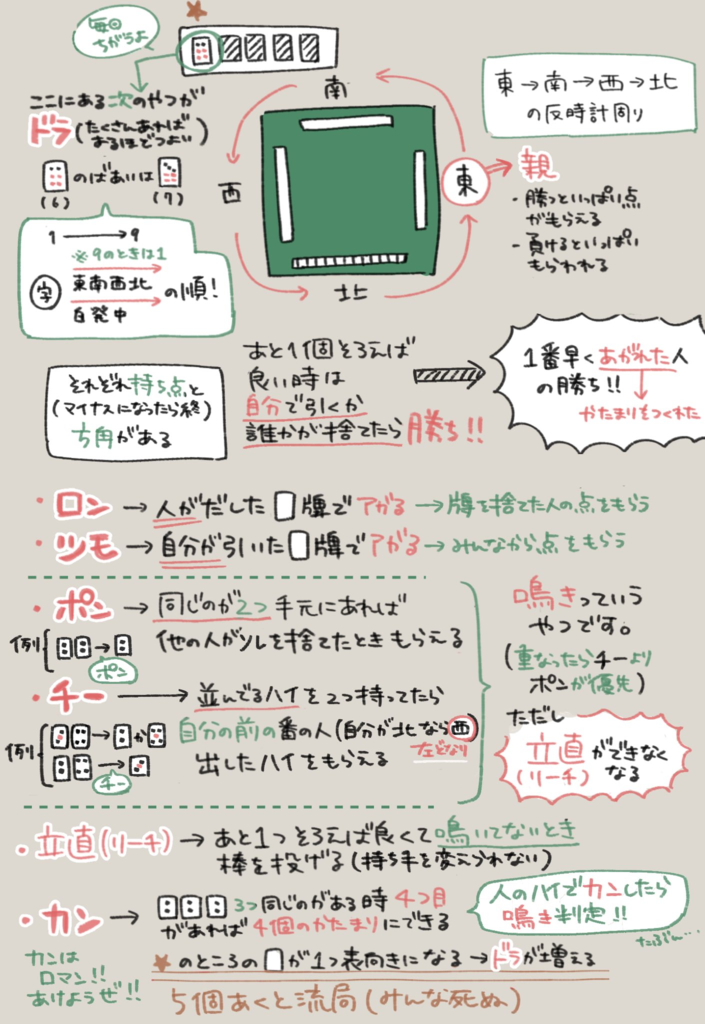 毎回
ちがうよ
ここにある次のやつが
ドラ(たくさんあれば
あるほどつよい)
のばあいは
(6)
(7)
1→9
※9のときは1
字 東南西北 の順!
白発中
南
西
東
北
東→南→西→北
の反時計周り
親
・勝つといっぱい点
がもらえる
・負けるといっぱい
もらわれる
それぞれ持ち点と
(マイナスになったら終)
方角がある
あと1個そろえば
良い時は
自分で引くか
誰かが捨てたら勝ち!!
1番早くあがれた人
の勝ち!!
かたまりをつくれた
・ロン→人がだした 牌でアガる→牌を捨てた人の点をもらう
・ツモ→自分が引いた 牌でアガる→みんなから点をもらう
・ポン→同じのが2つ手元にあれば
他の人がソレを捨てたときもらえる
例
→
ポン
・チー→並んでるハイを2つ持ってたら
自分の前の番の人(自分が北なら西)
左どなり
出したハイをもらえる
例
→ か
→
チー
鳴きっていう
やつです。
(重なったらチーより
ポンが優先)
ただし
立直ができなく
(リーチ) なる
・立直(リーチ)→あと1つそろえば良くて鳴いてないとき
棒を投げる(持ち手を変えられない)
・カン→ 3つ同じのがある時4つ目
があれば4個のかたまりにできる
人のハイでカンしたら
鳴き判定!!
たぶん…
カンは
ロマン!!
あけようぜ!!
★のところの が1つ表向きになる→ドラが増える
5個あくと流局(みんな死ぬ)